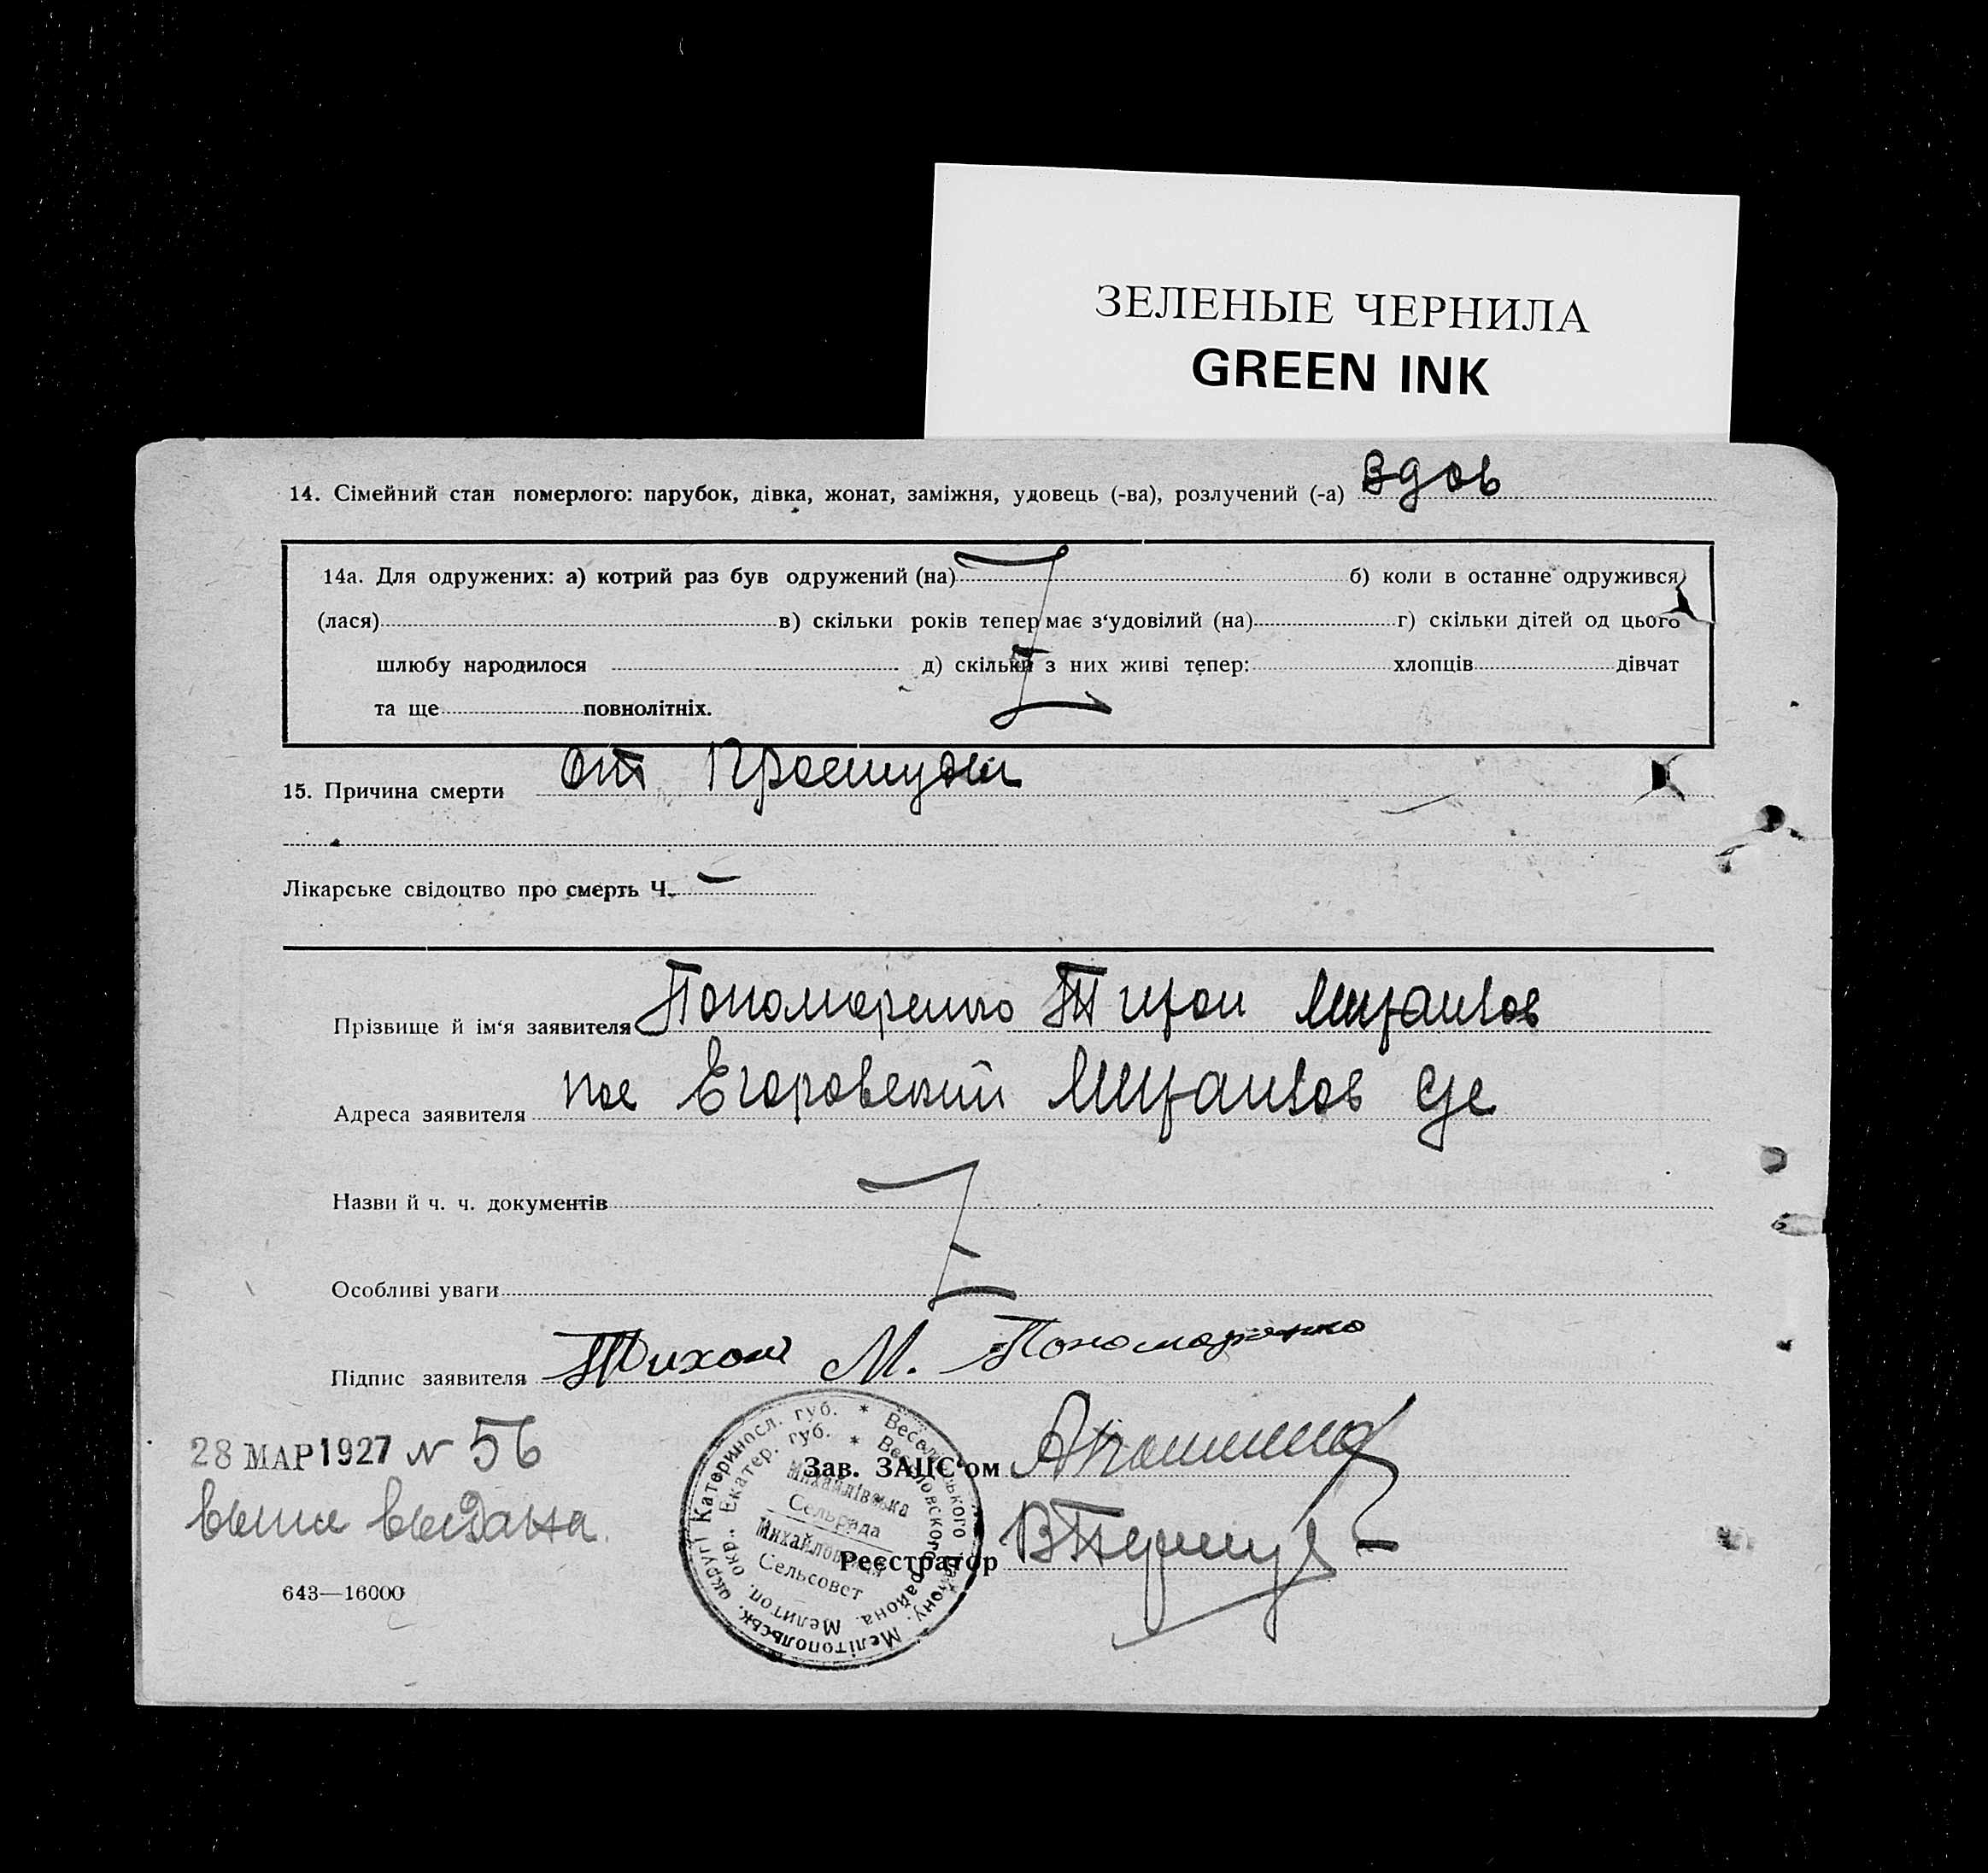 ЗЕЛЕНЫЕ ЧЕРНИЛА
GREEN INK
14. Сімейний стан померлого: парубок, дівка, жонат, заміжня, удовець (-ва), розлучений (-а) вдов
14а. Для одружених: а) котрий раз був одружений (на) б) коли в останне одружився
(лася) в) скільки років тепер має з‘удовілий (на) г) скільки дітей од цього
шлюбу народилося д) скільки з них живі тепер: хлопців дівчат
та ще повнолітніх.
15. Причина смерти от простуди
Лікарське свідоцтво про смерть Ч. —
Прізвище й ім‘я заявителя Пономаренко Тихон Михайлов
Адреса заявителя пос Егоровский Михайлов с/с
Назви й ч. ч. документів
Особливі уваги
Підпис заявителя Тихон М. Пономаренко
28 МАР 1927 № 56
выпис выдана.
Зав. ЗАЦС‘ом
Реєстратор
643—16000
Мелітопольськ. округи Катериносл. губ. * Веселівського району.
Мелитоп. окр. Екатер. губ. * Веселовского района.
Михайлівська
Сельрада
Михайловский
Сельсовет